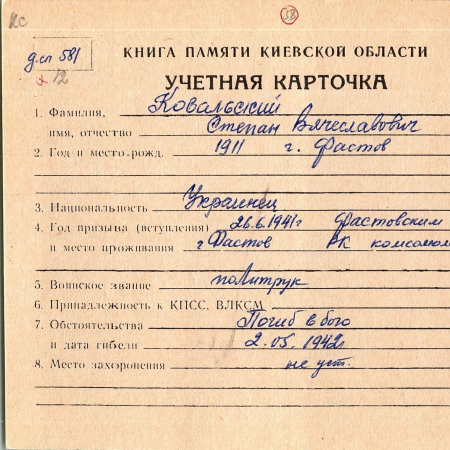 КС
58
д.сп 581
х 12
КНИГА ПАМЯТИ КИЕВСКОЙ ОБЛАСТИ
УЧЕТНАЯ КАРТОЧКА
1. Фамилия, Ковальский
имя, отчество Степан Вячеславович
2. Год и место рожд. 1911 г. Фастов
3. Национальность Украинец
4. Год призыва (вступления) 26.6.1941г Фастовским
и место проживания г Фастов РК комсомол
5. Воинское звание политрук
6. Принадлежность к КПСС, ВЛКСМ
7. Обстоятельства Погиб в бою
и дата гибели 2.05.1942
8. Место захоронения не уст.